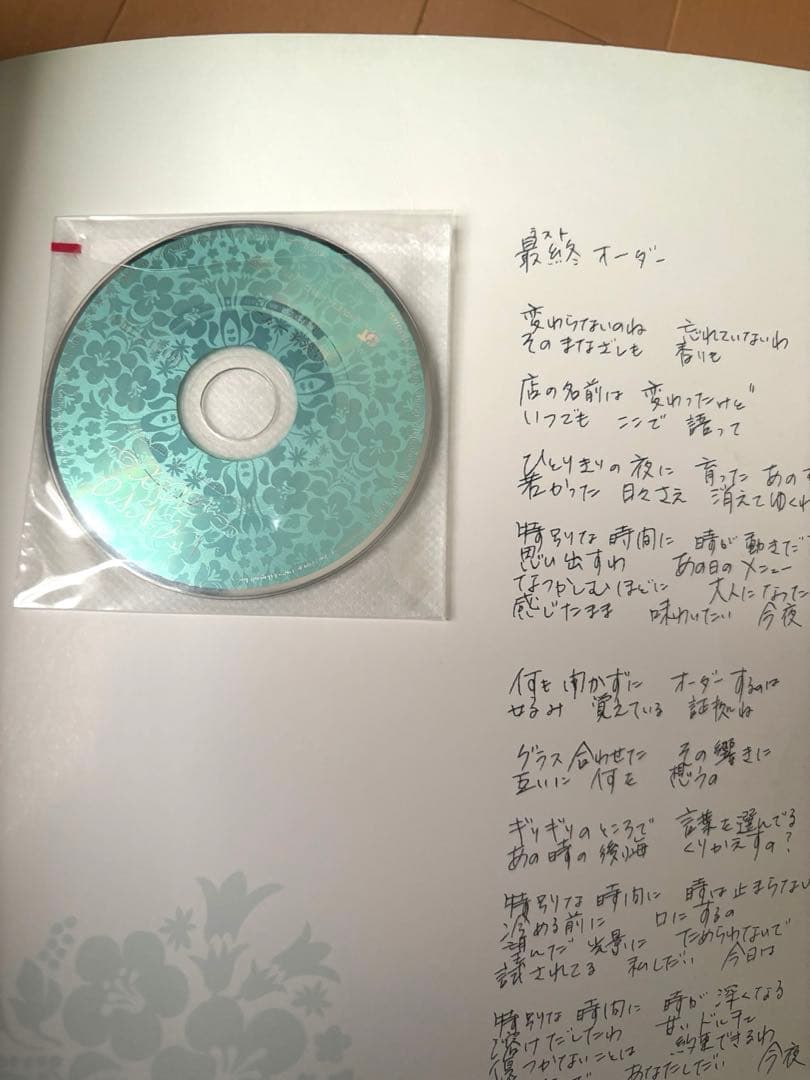 ラスト
最終 オーダー
変わらないのね 忘れていないわ
そのまなざしも 香りも
店の名前は 変わったけど
いつでも ここで 語って
ひとりきりの夜に 育った あの
若かった 日々さえ 消えてゆくわ
特別な時間に 時が動きだ
思い出すわ あの日のメニュー
なつかしむほどに 大人になった
感じたまま 味わいたい 今夜
何も聞かずに オーダーするのは
好み 覚えている 証拠ね
グラス合わせた その響きに
互いに 何を 想うの
ギリギリのところで 言葉を選んでる
あの時の後悔 くりかえすの?
特別な時間に 時は止まらない
冷める前に 口にするの
澄んだ 光景に ためらわないで
試されてる 私しだい 今日は
特別な時間に 時が深くなる
溶けだしたわ 甘い ドルチェ
傷つかないことは 約束できるわ
あなたしだい 今夜